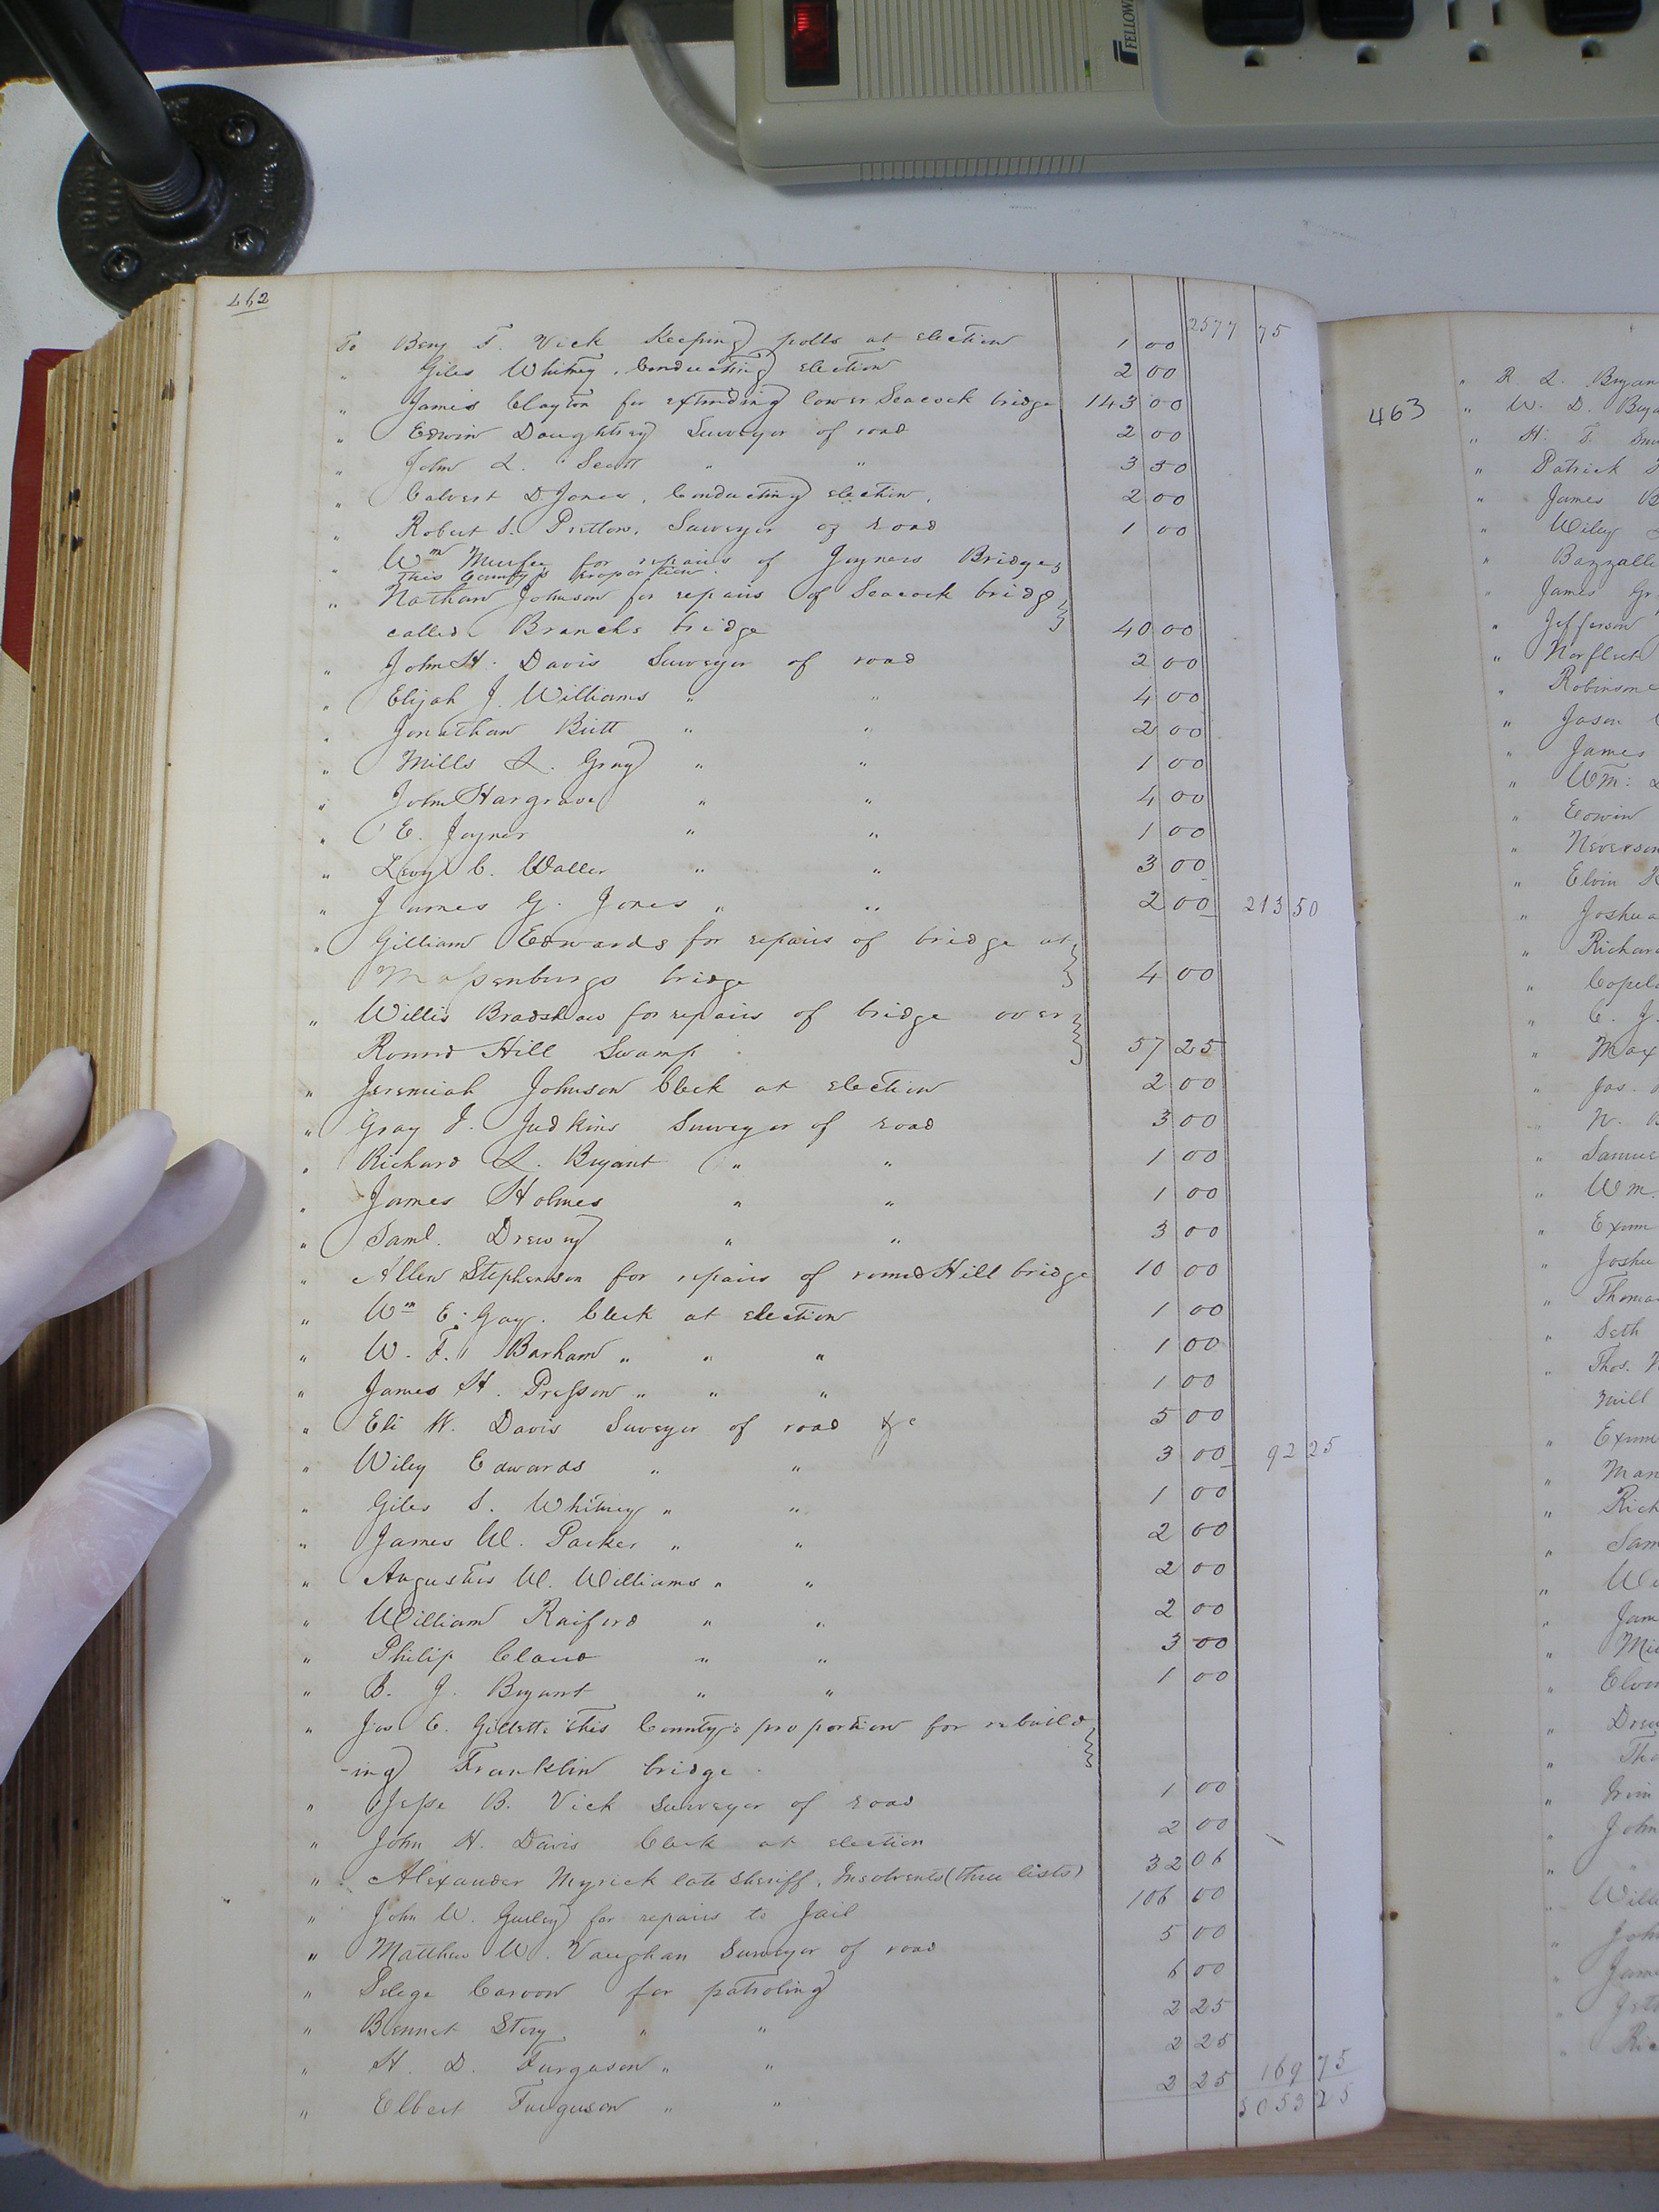 FELLOW
462
2577 75
To Benj T. Vick Keeping polls at election 1 00
" Giles Whitney, Conducting election 2 00
" James Clayton for extending lower Seacock bridge 143 00
" Edwin Daughtrey Surveyor of road 2 00
" John L. Scott " " 3 50
" Calvert D. Jones, Conducting election, 2 00
" Robert S. Pretlow, Surveyor of road 1 00
" Wm Murfee for repairs of Joyners Bridge,
This County's proportion.
" Nathan Johnson for repairs of Seacock bridge
called Branchs bridge 40 00
" John H. Davis Surveyor of road 2 00
" Elijah J. Williams " " 4 00
" Jonathan Butt " " 2 00
" Mills L. Gray " " 1 00
" John Hargrave " " 4 00
" E. Joyner " " 1 00
" Levy C. Waller " " 3 00
" James G. Jones " " 2 00 213 50
" Gilliam Edwards for repairs of bridge at
Massenburgs bridge 4 00
" Willis Bradshaw for repairs of bridge over
Round Hill Swamp 57 25
" Jeremiah Johnson Clerk at election 2 00
" Gray J. Judkins Surveyor of road 3 00
" Richard L. Bryant " " 1 00
" James Holmes " " 1 00
" Saml. Drewry " " 3 00
" Allen Stephenson for repairs of round Hill bridge 10 00
" Wm E. Gay. Clerk at election 1 00
" W. F. Barham " " " 1 00
" James H. Presson " " " 1 00
" Eli W. Davis Surveyor of road &c 5 00
" Wiley Edwards " " 3 00 92 25
" Giles S. Whitney " " 1 00
" James W. Parker " " 2 00
" Augustus W. Williams " " 2 00
" William Raiford " " 2 00
" Philip Claud " " 3 00
" B. J. Bryant " " 1 00
" Jos E. Gillette this County's proportion for rebuild
-ing Franklin bridge
" Jesse B. Vick Surveyor of road 1 00
" John H. Davis Clerk at election 2 00
" Alexander Myrick late Sheriff, Insolvents (three lists) 32 06
" John W. Gurley for repairs to Jail 106 00
" Matthew W. Vaughan Surveyor of road 5 00
" Carvon for patroling 6 00
" Bennet Story " " 2 25
" H. D. Furgason " " 2 25
" Elbert Furguson " " 2 25 169 75
3053 25
463
" R. L. Bryan
" W. D. Brya
" H. T.
" Patrick
" James B
" Wiley
" Bazzalle
" James Gr
" Jefferson
" Norfleet
" Robinson
" Jason
" James
" Wm:
" Edwin
" Neverson
" Elvin
" Joshua
" Richard
" Copel
" C. J.
" Max
" Jas.
" N.
" Samue
" Wm.
" Exum
" Joshu
" Thoma
" Seth
" Thos.
mill
" Exum
" Man
" Rich
" Sam
" Wi
" Jam
" Mi
" Elvin
" Drew
" Tho
" Irvin
" John
"
" Will
" John
" Jame
"
" Ric